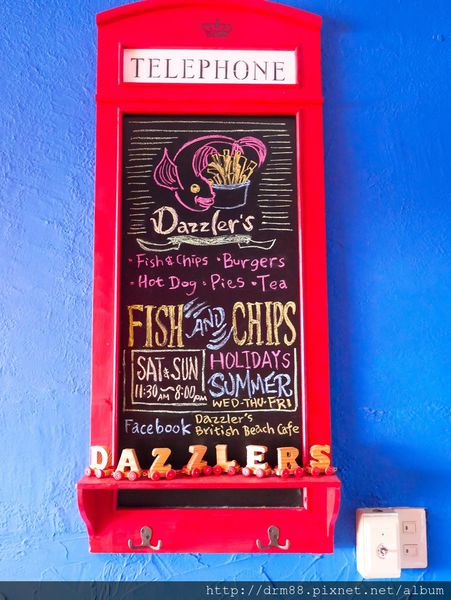 TELEPHONE
Dazzler's
· Fish & Chips · Burgers
· Hot Dog · Pies · Tea
FISH AND CHIPS
SAT & SUN
11:30AM~8:00PM
HOLIDAYS
SUMMER
WED-THU-FRI
Facebook Dazzler's
British Beach Cafe
DAZZLERS
http://drm88.pixnet.net/album